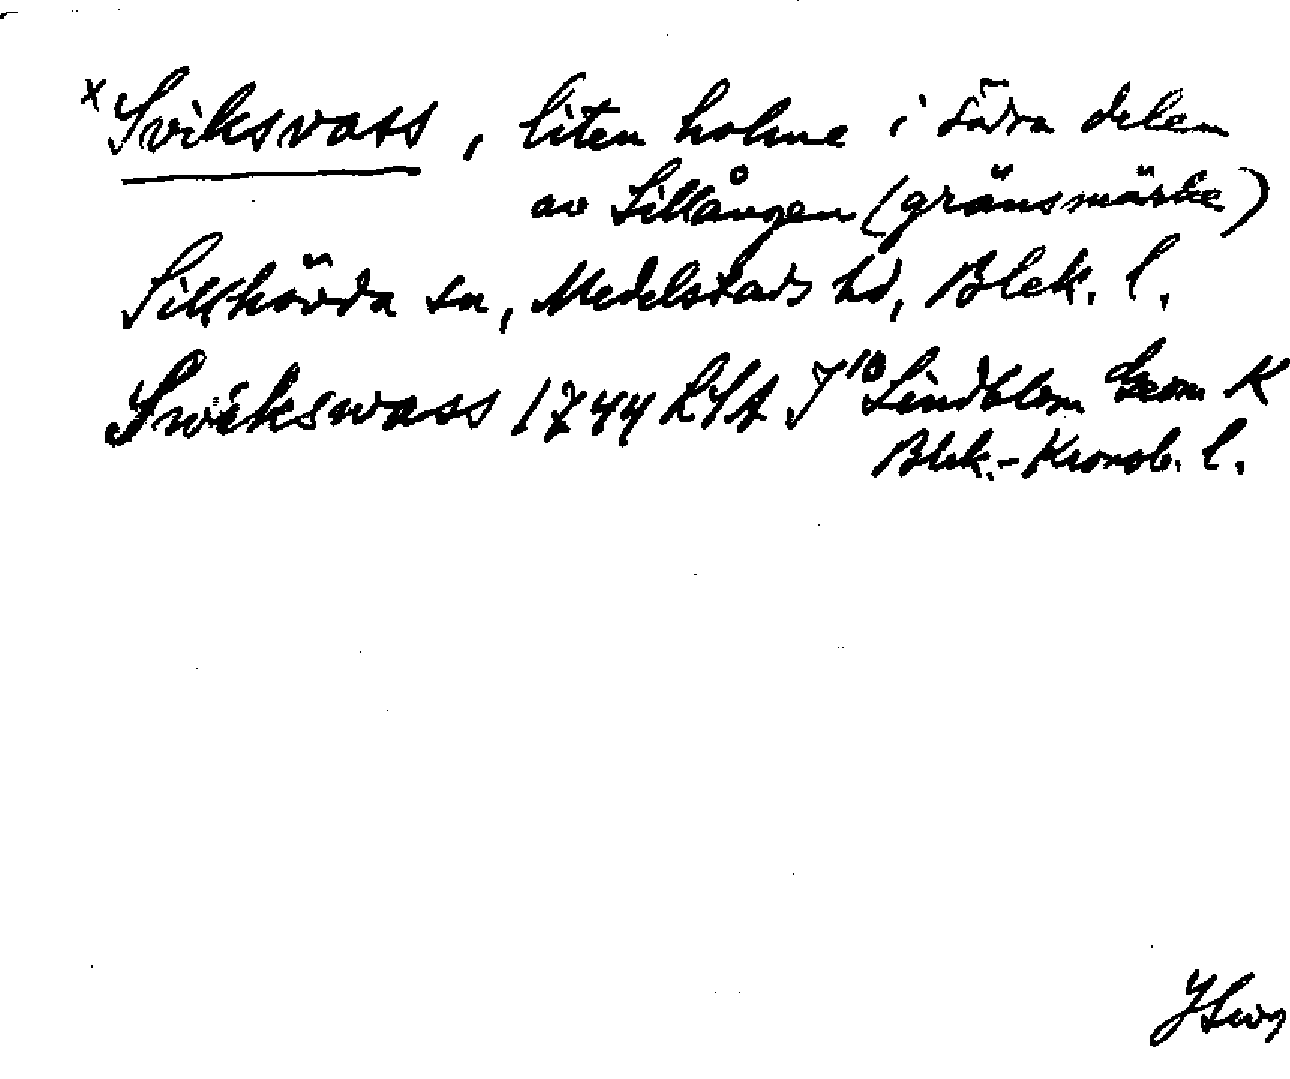 x Sviksvass, liten holme i södra delen
av Sillången (gränsmärke)
Sillhövda sn, Medelstads hd, Blek. l.
Swiksvass 1744 LSA J¹⁰ Lindblom Geom K
Blek.-Kronob. l.